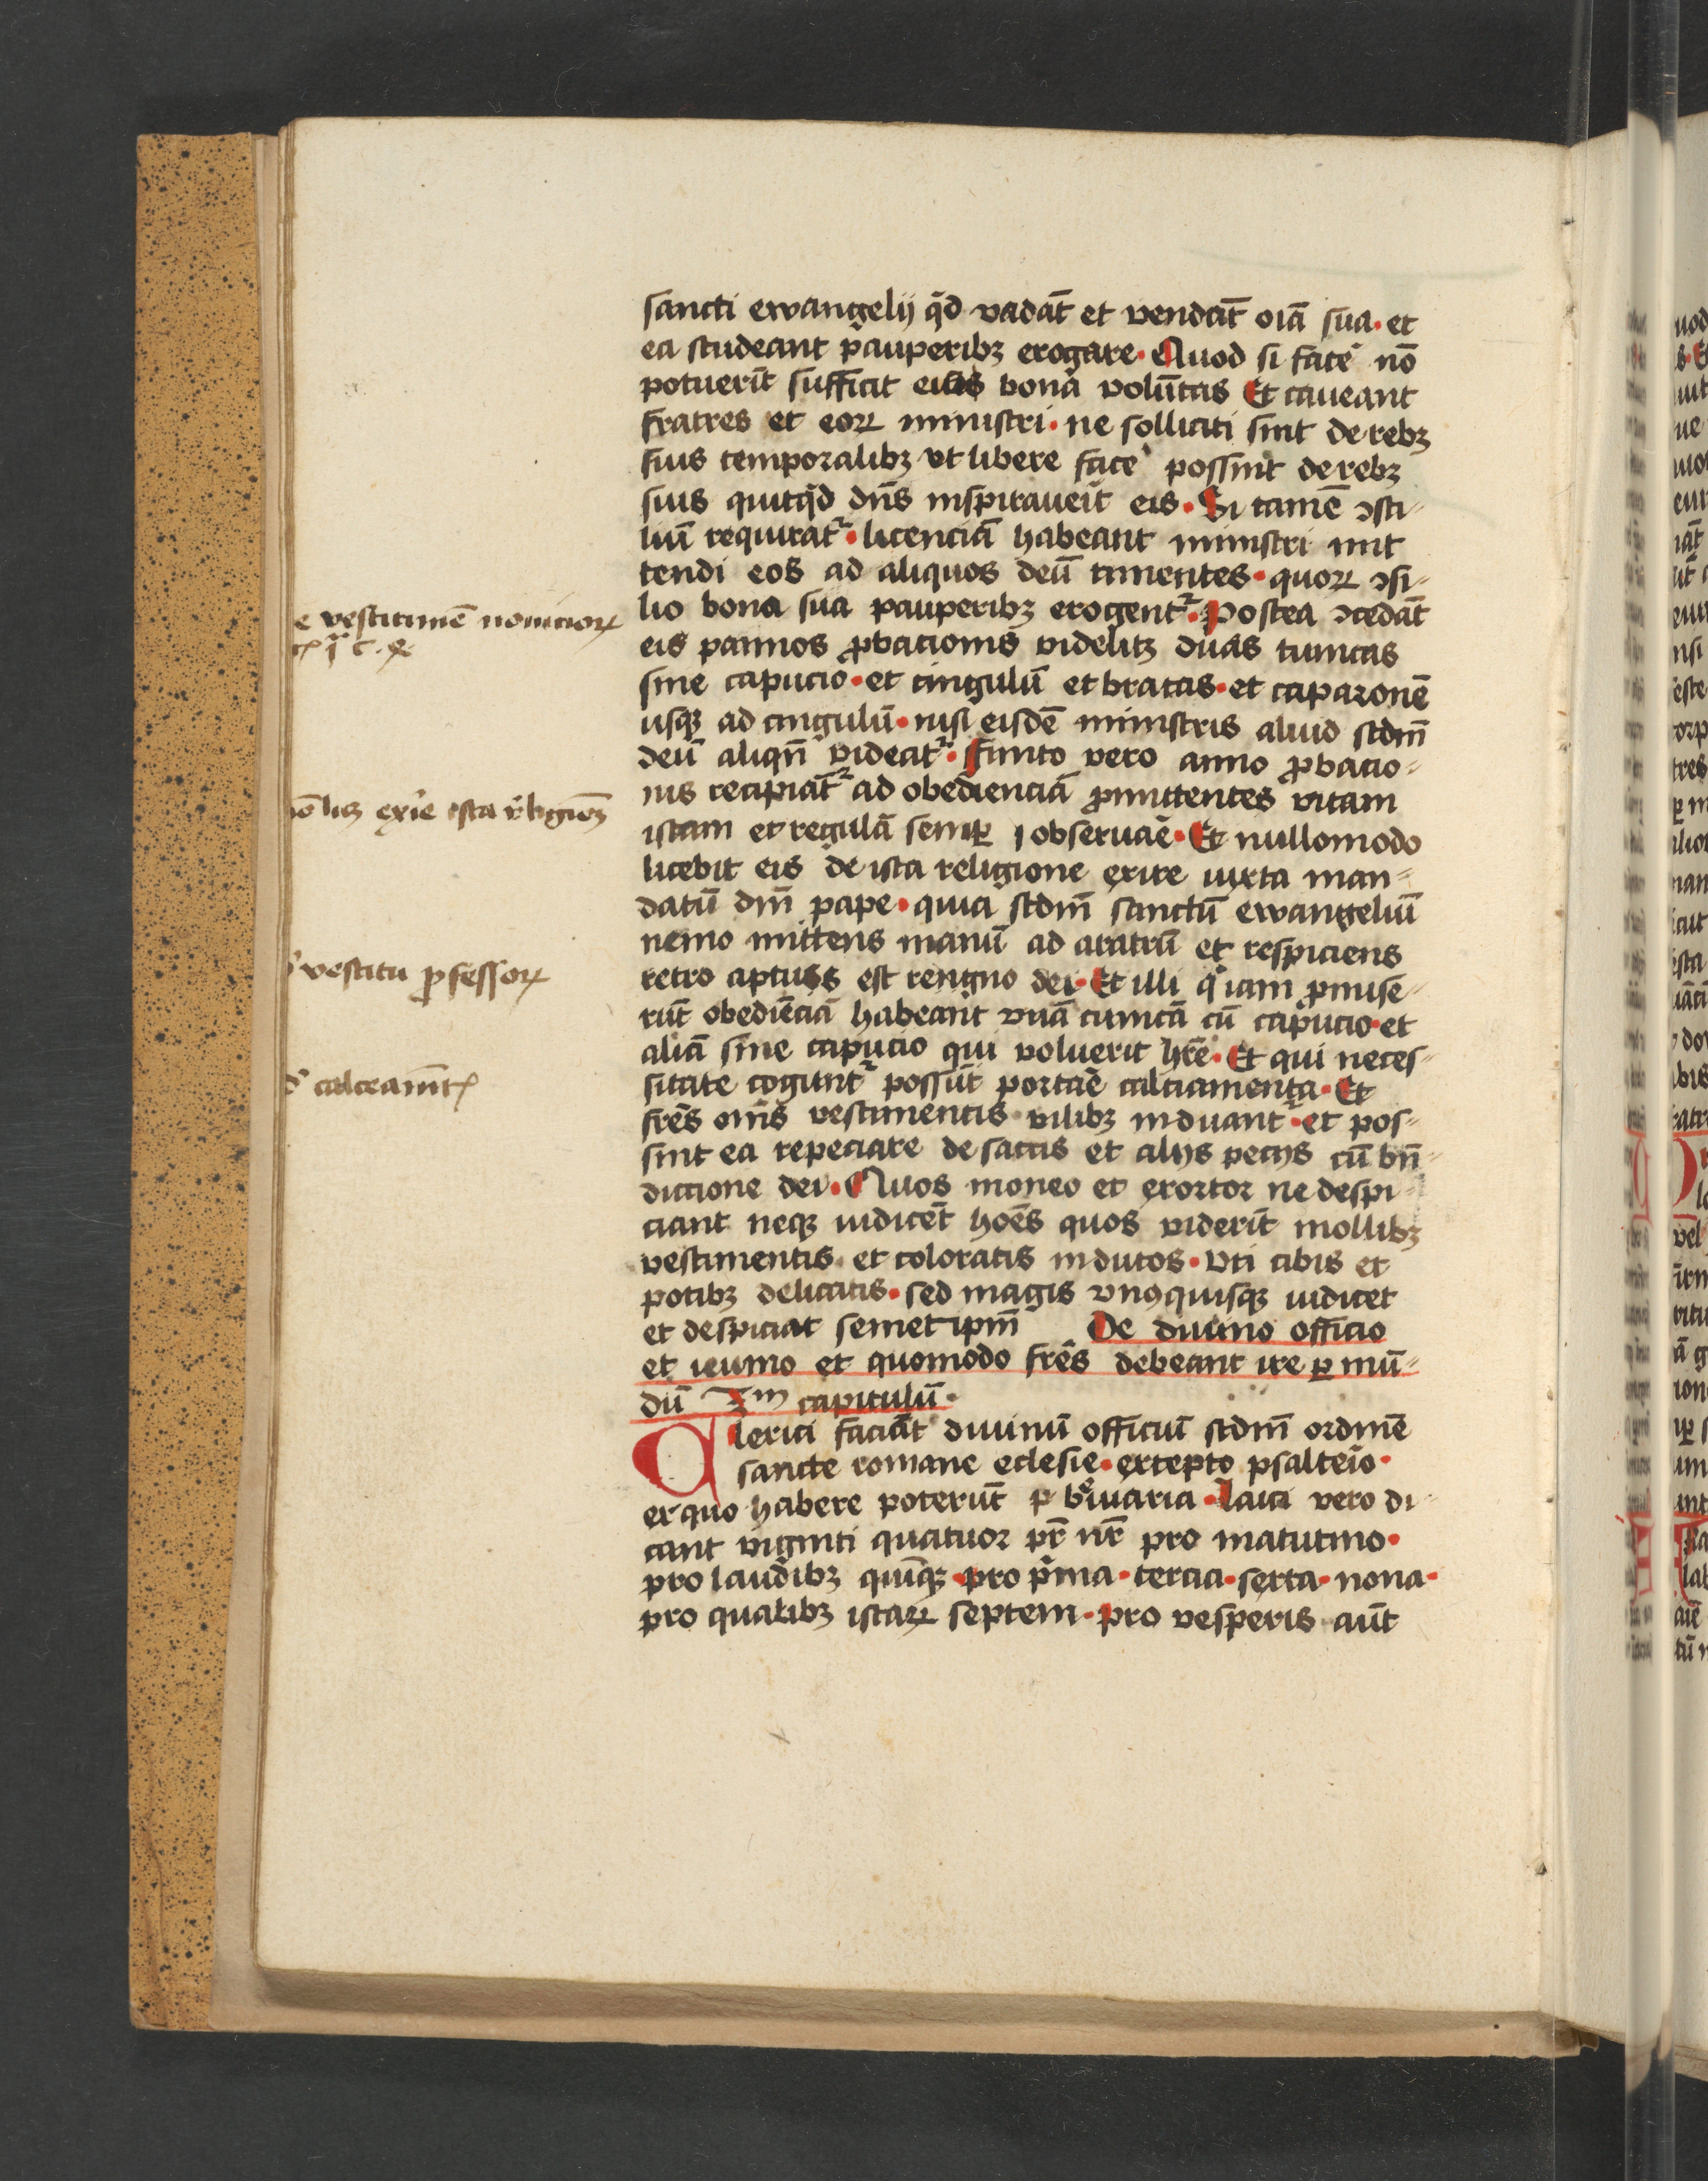 sancti ewangelij qd̄ vadāt et vendāt oīa sua · et
ea studeant pauperibꝫ erogare · Quod si facē nō
potuerīt sufficit eis bona volūtas Et caveant
fratres et eoꝝ ministri · ne solliciti sint de rebꝫ
suis temporalibꝫ vt libere facē possint de rebꝫ
suis quitqd̄ dn̄s inspiraverīt eis · Si tamē ꝯsi-
liū requiratᷣ · licenciā habeant ministri mit
tendi eos ad aliquos deū timentes · quoꝝ ꝯsi-
lio bona sua pauperibꝫ erogentᷣ · Postea ꝯcedāt
e vestitimē nouicioꝝ
eis pannos ꝓbacionis videlitꝫ duas tunicas
sine capucio · et cingulū et bracas · et caparonē
usqꝫ ad cingulū · nisi eisdē ministris aliud scdm̄
deū aliqn̄ videatᷣ · Finito vero anno ꝓbacio-
nis recipiātᷣ ad obedienciā ꝓmittentes vitam
iō licꝫ exīe ista rͤligioꝫ
istam et regulā semꝑ observaē · Et nullomodo
licebit eis de ista religione exire iuxta man-
datū dn̄i pape · quia scdm̄ sanctū ewangeliū
nemo mittens manū ad aratrū et respiciens
retro aptus est rengno dei · Et illi qͥ iam ꝓmise-
vestitu ꝓfessoꝝ
rūt obediēciā habeant vnā tunicā cū capucio · et
aliā sine capucio qui voluerit hr̄e · Et qui neces-
sitate cogūtᷣ possūt portaē calciamenta · Et
calceamēt
frēs om̄s vestimentis vilibꝫ induantᷣ · et pos-
sint ea repeciare de saccis et alijs pecijs cū bn̄-
dictione dei · Quos moneo et exortor ne despi-
ciant neqꝫ iudicēt hoēs quos viderīt mollibꝫ
vestimentis · et coloratis indutos · vti cibis et
potibꝫ delicatis · sed magis vnꝰquisqꝫ iudicet
et despiciat semet ipm̄ De divino officio
et ieiunio et quomodo frēs debeant ire ꝑ mū-
dū 3m capitulū ·
Clerici faciāt divinū officiū scdm̄ ordinē
sancte romane eclesie · excepto psalteīo ·
ex quo habere poterūt breuiaria · Laici vero di-
cant viginti quatuor pr̄ nr̄ pro matutino ·
pro laudibꝫ quīqꝫ · pro pͥma · tercia · sexta · nona ·
pro qualibꝫ istaꝝ septem · pro vesperis aūt